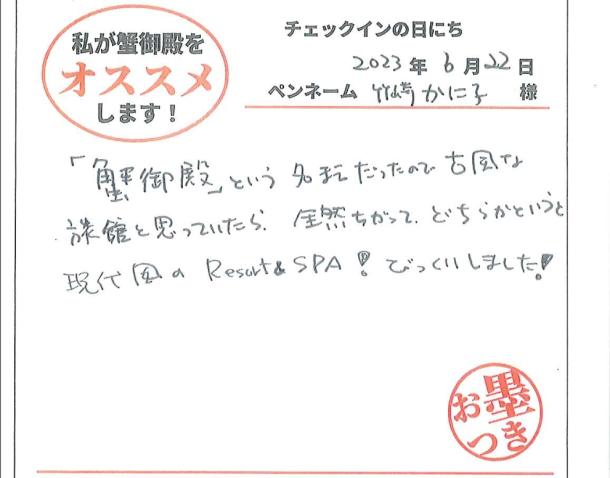 私が蟹御殿を
オススメ
します！
チェックインの日にち
2023年6月22日
ペンネーム 竹崎かに子 様
「蟹御殿」という名まえだったので古風な
旅館と思っていたら、全然ちがって、どちらかというと
現代風のResort&SPA！びっくりしました！
お墨
つき